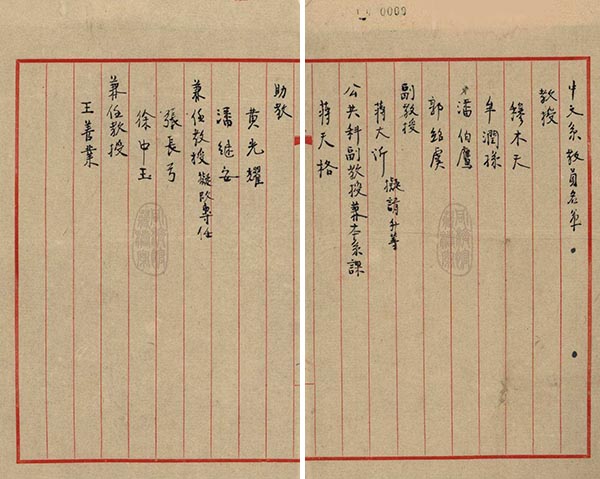 中文系教員名單
教授
穆木天
牟潤孫
潘伯鷹
郭紹虞
副教授
蔣大沂 擬請升等
公共科副教授兼本系課
蔣天格
助教
黃光耀
潘継安
兼任教授 擬改專任
張長弓
徐中玉
兼任教授
王善業